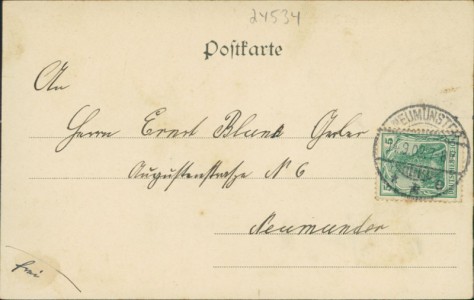 24534
Postkarte
An
Herrn Ernst Blunk Gerber
Augustenstraße N 6
Neumünster
frei
NEUMÜNSTER
5 5